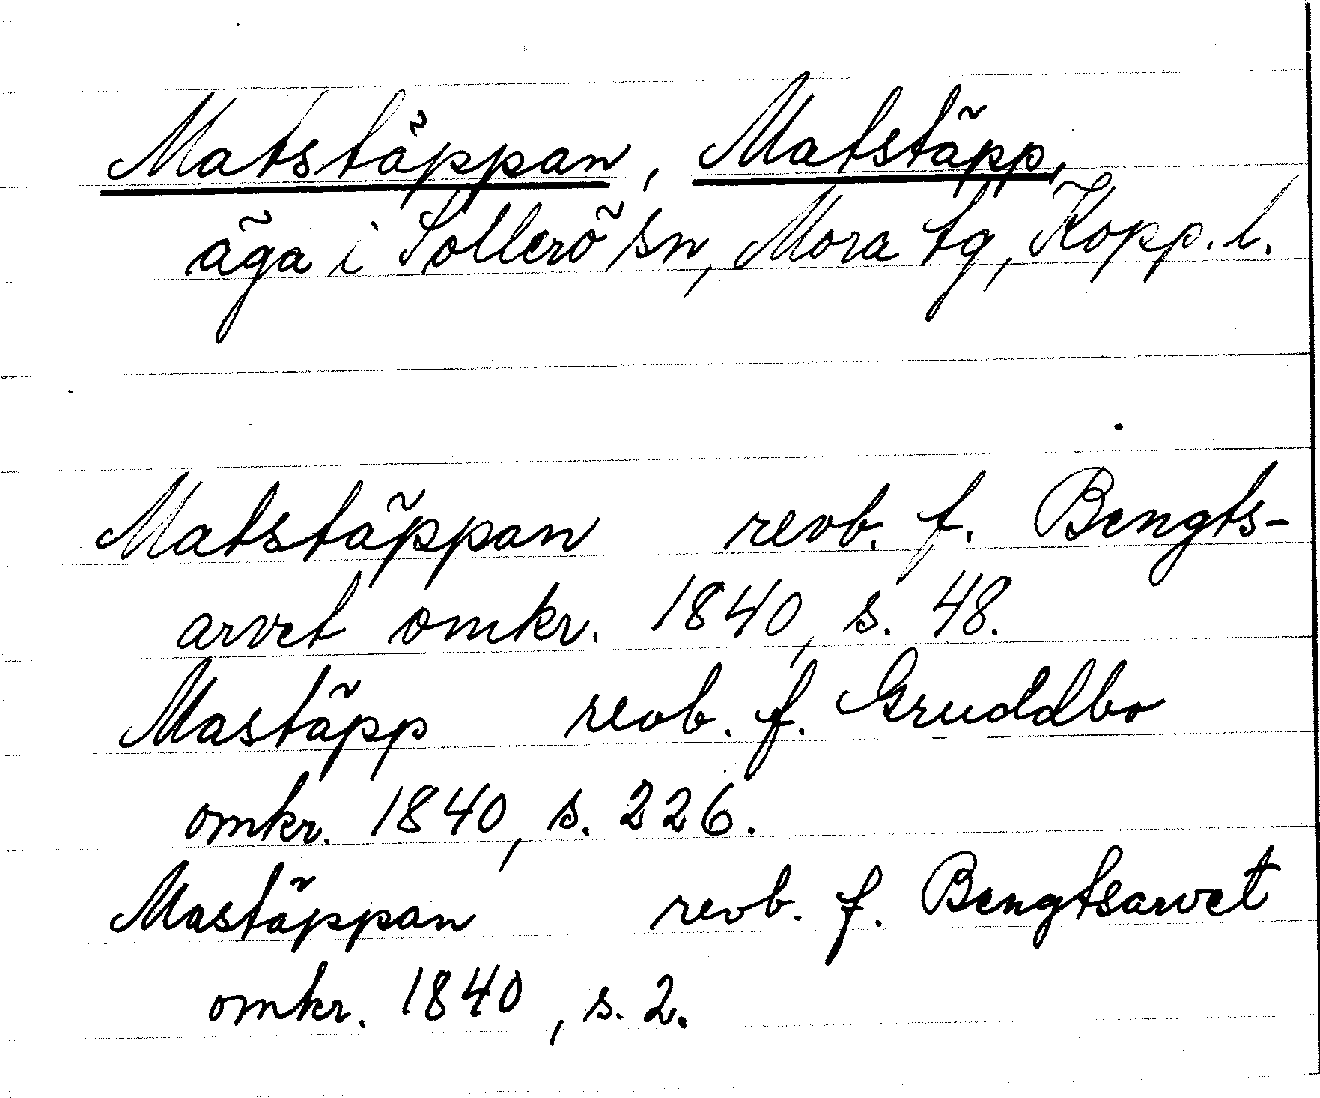 Matstäppan, Matstäpp,
äga i Sollerö sn, Mora tg, Kopp. l.
Matstäppan revb. f. Bengts-
arvet omkr. 1840, s. 48.
Mastäpp revb. f. Gruddbo
omkr. 1840, s. 226.
Mastäppan revb. f. Bengtsarvet
omkr. 1840, s. 2.